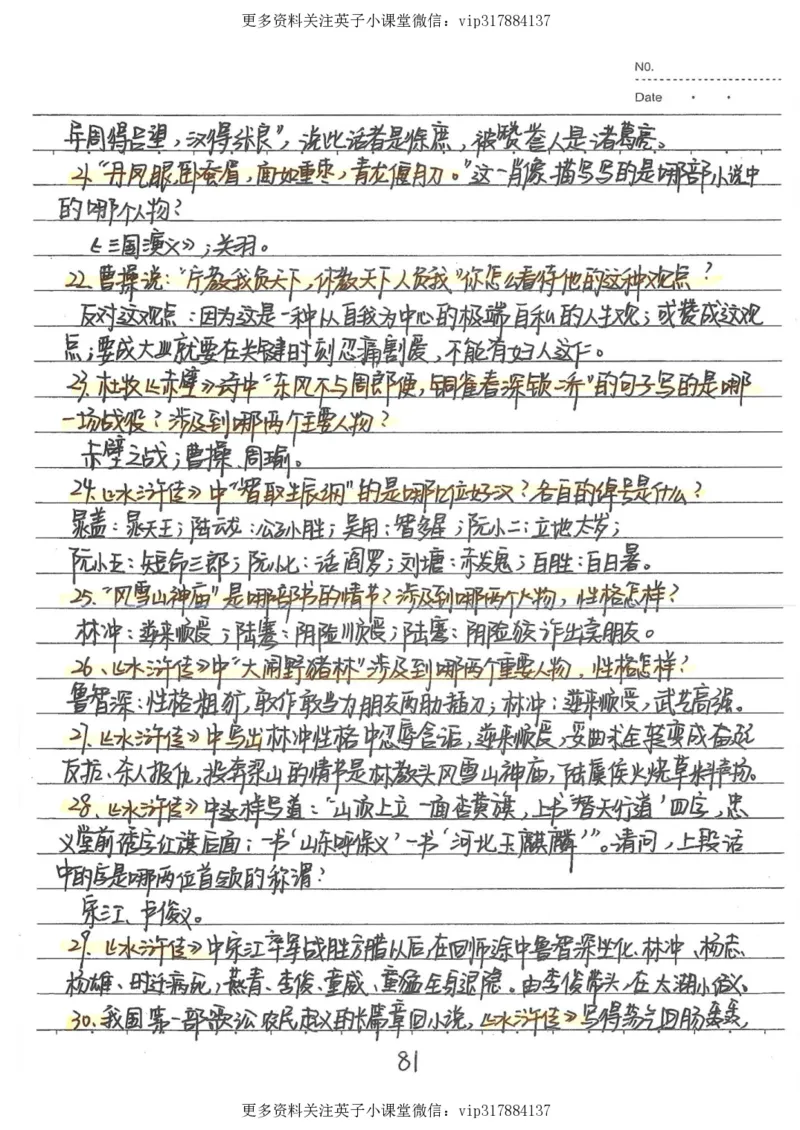 更多资料关注英子小课堂微信：vip317884137
N0.
Date
异周得吕望，汉得张良”，说此话者是徐庶，被赞誉人是诸葛亮。
21.“丹凤眼，卧蚕眉，面如重枣，青龙偃月刀。”这一肖像描写写的是哪部小说中
的哪个人物？
《三国演义》；关羽。
22.曹操说：“宁教我负天下，休教天下人负我”你怎么看待他的这种观点？
反对这观点：因为这是一种从自我为中心的极端自私的人生观；或赞成这观
点；要成大业就要在关键时刻忍痛割爱，不能有妇人这仁。
23.杜牧《赤壁》诗中“东风不与周郎便，铜雀春深锁二乔”的句子写的是哪
一场战役？涉及到哪两个主要人物？
赤壁之战；曹操、周瑜。
24.《水浒传》中“智取生辰纲”的是哪几位好汉？各自的绰号是什么？
晁盖：晁天王；陆云龙：公孙胜；吴用：智多星；阮小二：立地太岁；
阮小五：短命三郎；阮小七：活阎罗；刘塘：赤发鬼；白胜：白日暑。
25.“风雪山神庙”是哪部书的情节？涉及到哪两个人物，性格怎样？
林冲：逆来顺受；陆骞：阴险顺受；陆骞：阴险狡诈出卖朋友。
26、《水浒传》中“大闹野猪林”涉及到哪两个重要人物，性格怎样？
鲁智深：性格粗犷，敢作敢当为朋友两肋插刀；林冲：逆来顺受，武艺高强。
27.《水浒传》中写出林冲性格中忍辱含诟，逆来顺受，委曲求全转变成奋起
反抗、杀人报仇，投奔梁山的情节是林教头风雪山神庙，陆虞侯火烧草料场。
28、《水浒传》中这样写道：“山顶上立一面杏黄旗，上书‘替天行道’四字，忠
义堂前绣字红旗后面；一书‘山东呼保义’一书‘河北玉麒麟’”。请问，上段话
中的后是哪两位首领的称谓？
宋江、卢俊义。
29.《水浒传》中宋江率军战胜方腊以后，在回师途中鲁智深坐化、林冲、杨志、
杨雄、时迁病死，燕青、李俊、童威、童猛全身退隐。由李俊带头，在太湖小结义。
30.我国第一部歌讼农民起义的长篇章回小说，《水浒传》写得荡气回肠轰轰，
81
更多资料关注英子小课堂微信：vip317884137